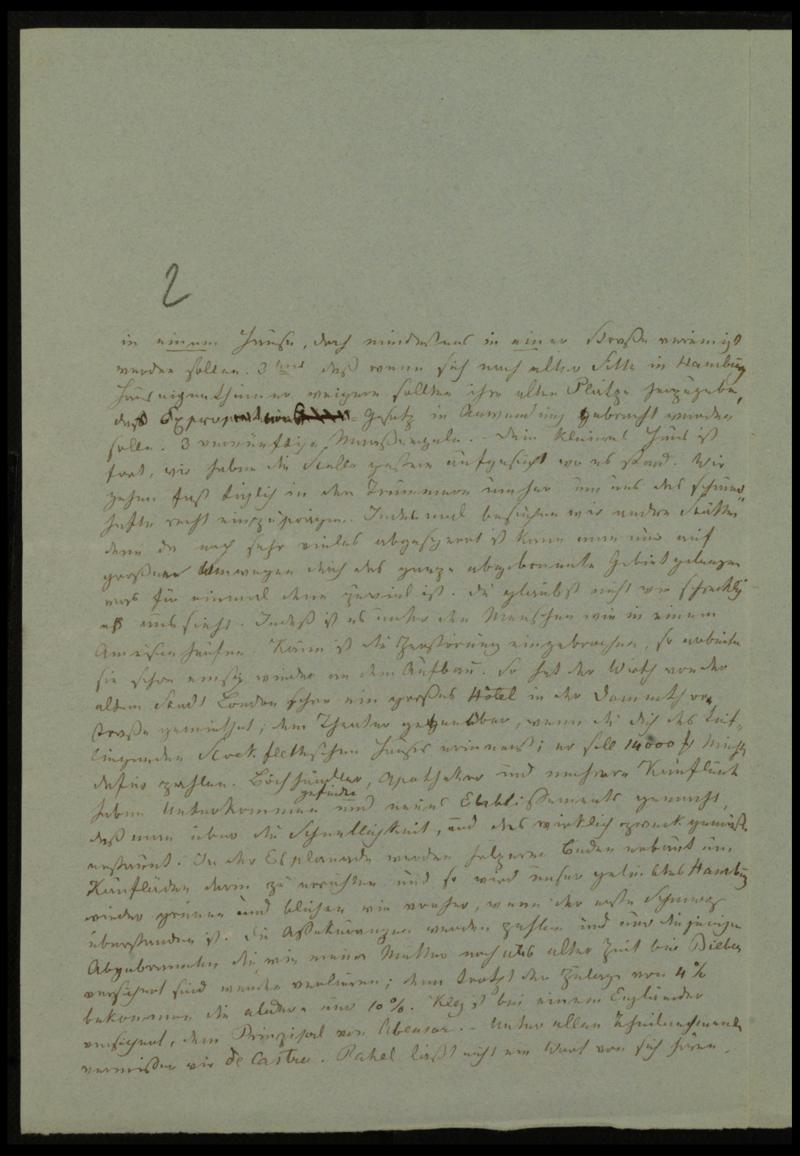 2
in einem Hause, doch mindestens in einer Straße vereinigt
werden sollen. 3tens daß wenn sich nach alter Sitte in Hamburg
Hauseigenthümer weigern sollten ihre alten Plätze herzugeben,
das Expropriations Gesetz in Anwendung gebracht werden
solle. 3 vernünftige Maasregeln. – Dein kleines Haus ist
fort, wir haben die Stelle gestern aufgesucht wo es stand. Wir
gehen fast täglich in den Trümmern umher um uns das schmerz-
hafte recht einzuprägen. Jedes mal besuchen wir andere Stätten
denn da noch sehr vieles abgesperrt ist kann man nur auf
großen Umwegen durch das ganze abgebrannte Gebiet gelangen
was für einmal denn zuviel ist. Du glaubst nicht wie schrecklich
es aussieht. Indeß ist es unter den Menschen wie in einem
Ameisenhaufen. Kaum ist die Zerstörung eingebrochen, so arbeiten
sie schon emsig wieder an dem Aufbau. So hat der Wirth von der
alten Stadt London schon ein großes Hôtel in der Dammthor-
straße gemiethet; dem Theater gegenüber, wenn du dich des
liegenden Hauses erinnerst; er soll 14000 Miethe
dafür zahlen. Buchhändler, Apotheker und mehrere Kaufleute
haben Unterkommen gefunden und neue Etablissements gemacht,
daß man über die Schnelligkeit, und das wirklich zweckgemäße
erstaunt. In der Esplanade werden hölzerne Buden erbaut um
Kaufläden darin zu errichten und so wird unser geliebtes Hamburg
wieder grünen und blühen wie vorher, wenn der erste Schmerz
überstanden ist. Die Assekuranzen werden zahlen und nur diejenigen
Abgebrannten die wie meine Mutter noch aus alter Zeit bei Bieber
versichert sind werden verlieren; denn trotz der Zulage von 4 %
bekommen die andern nur 10 %. Kley ist bei einem Engländer
versichert, dem Prinzipal von Abensur. – Unter allen Theilnehmenden
vermissen wir de Castro. Rahel läßt nicht ein Wort von sich hören,